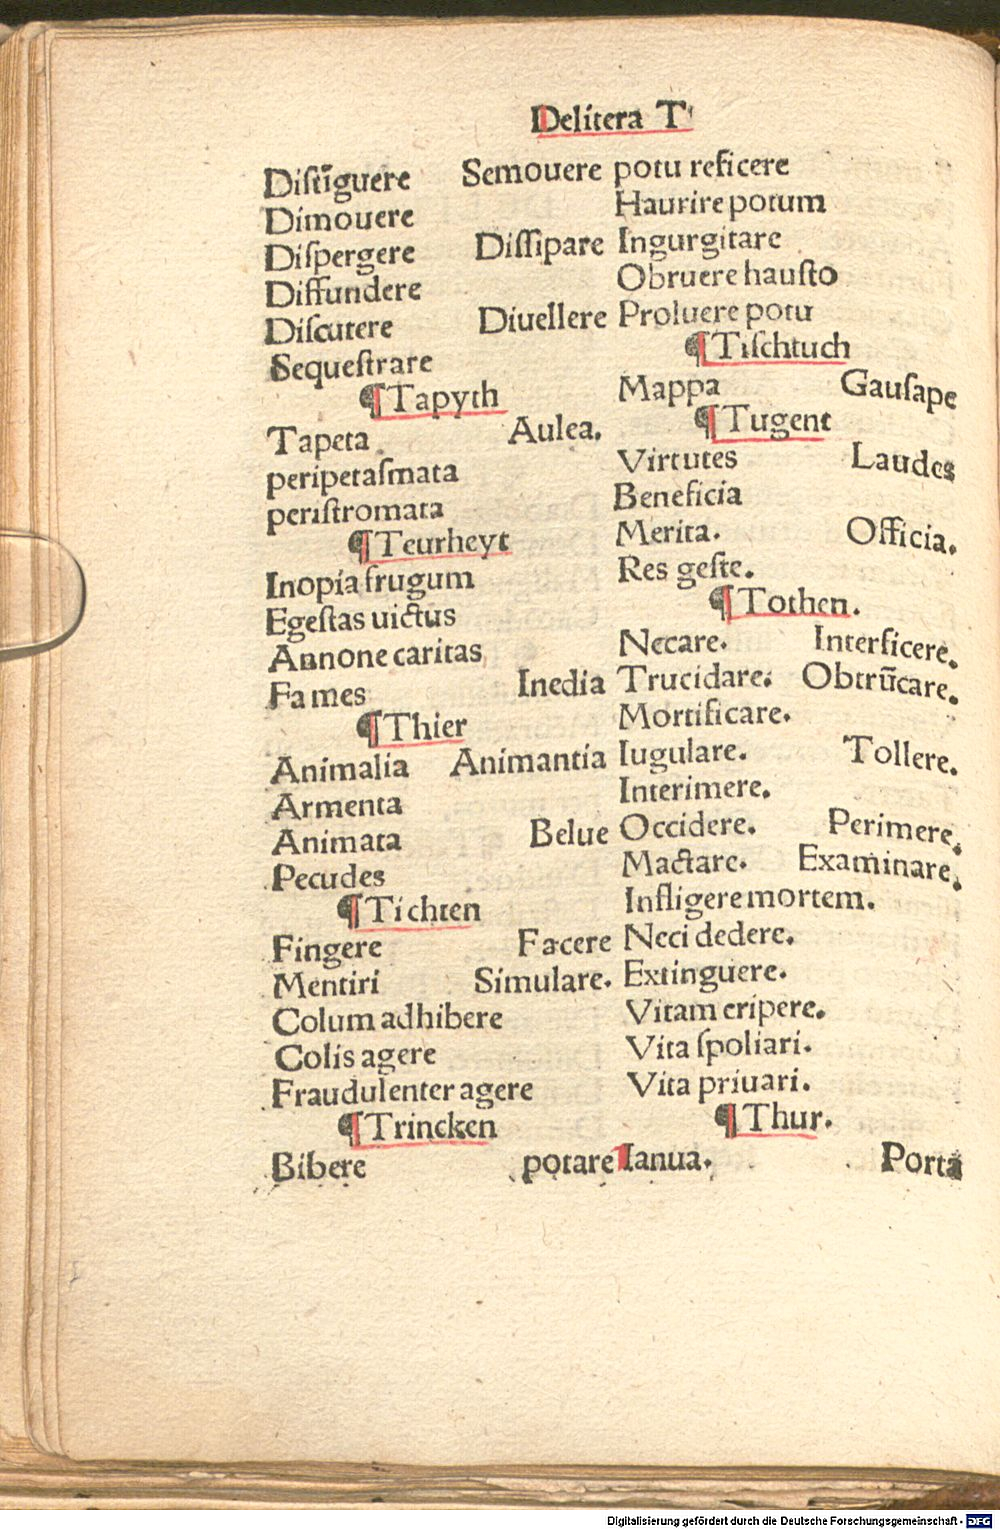 Delitera T
Diſtīguere Semouere
Dimouere
Diſpergere Diſſipare
Diffundere
Diſcutere Diuellere
Sequeſtrare
¶Tapyth
Tapeta Aulea.
peripetaſmata
periſtromata
¶Teurheyt
Inopia frugum
Egeſtas uictus
Annone caritas
Fames Inedia
¶Thier
Animalia Animantia
Armenta
Animata Belue
Pecudes
¶Tichten
Fingere Facere
Mentiri Simulare.
Colum adhibere
Colis agere
Fraudulenter agere
¶Trincken
Bibere potare
potu reficere
Haurire potum
Ingurgitare
Obruere hauſto
Proluere potu
¶Tiſchtuch
Mappa Gauſape
¶Tugent
Virtutes Laudes
Beneficia
Merita. Officia.
Res geſte.
¶Tothen.
Necare. Interficere.
Trucidare. Obtrūcare.
Mortificare.
Iugulare. Tollere.
Interimere.
Occidere. Perimere.
Mactare. Examinare.
Infligere mortem.
Neci dedere.
Extinguere.
Vitam eripere.
Vita ſpoliari.
Vita priuari.
¶Thur.
Ianua. Porta
Digitalisierung gefördert durch die Deutsche Forschungsgemeinschaft - DFG